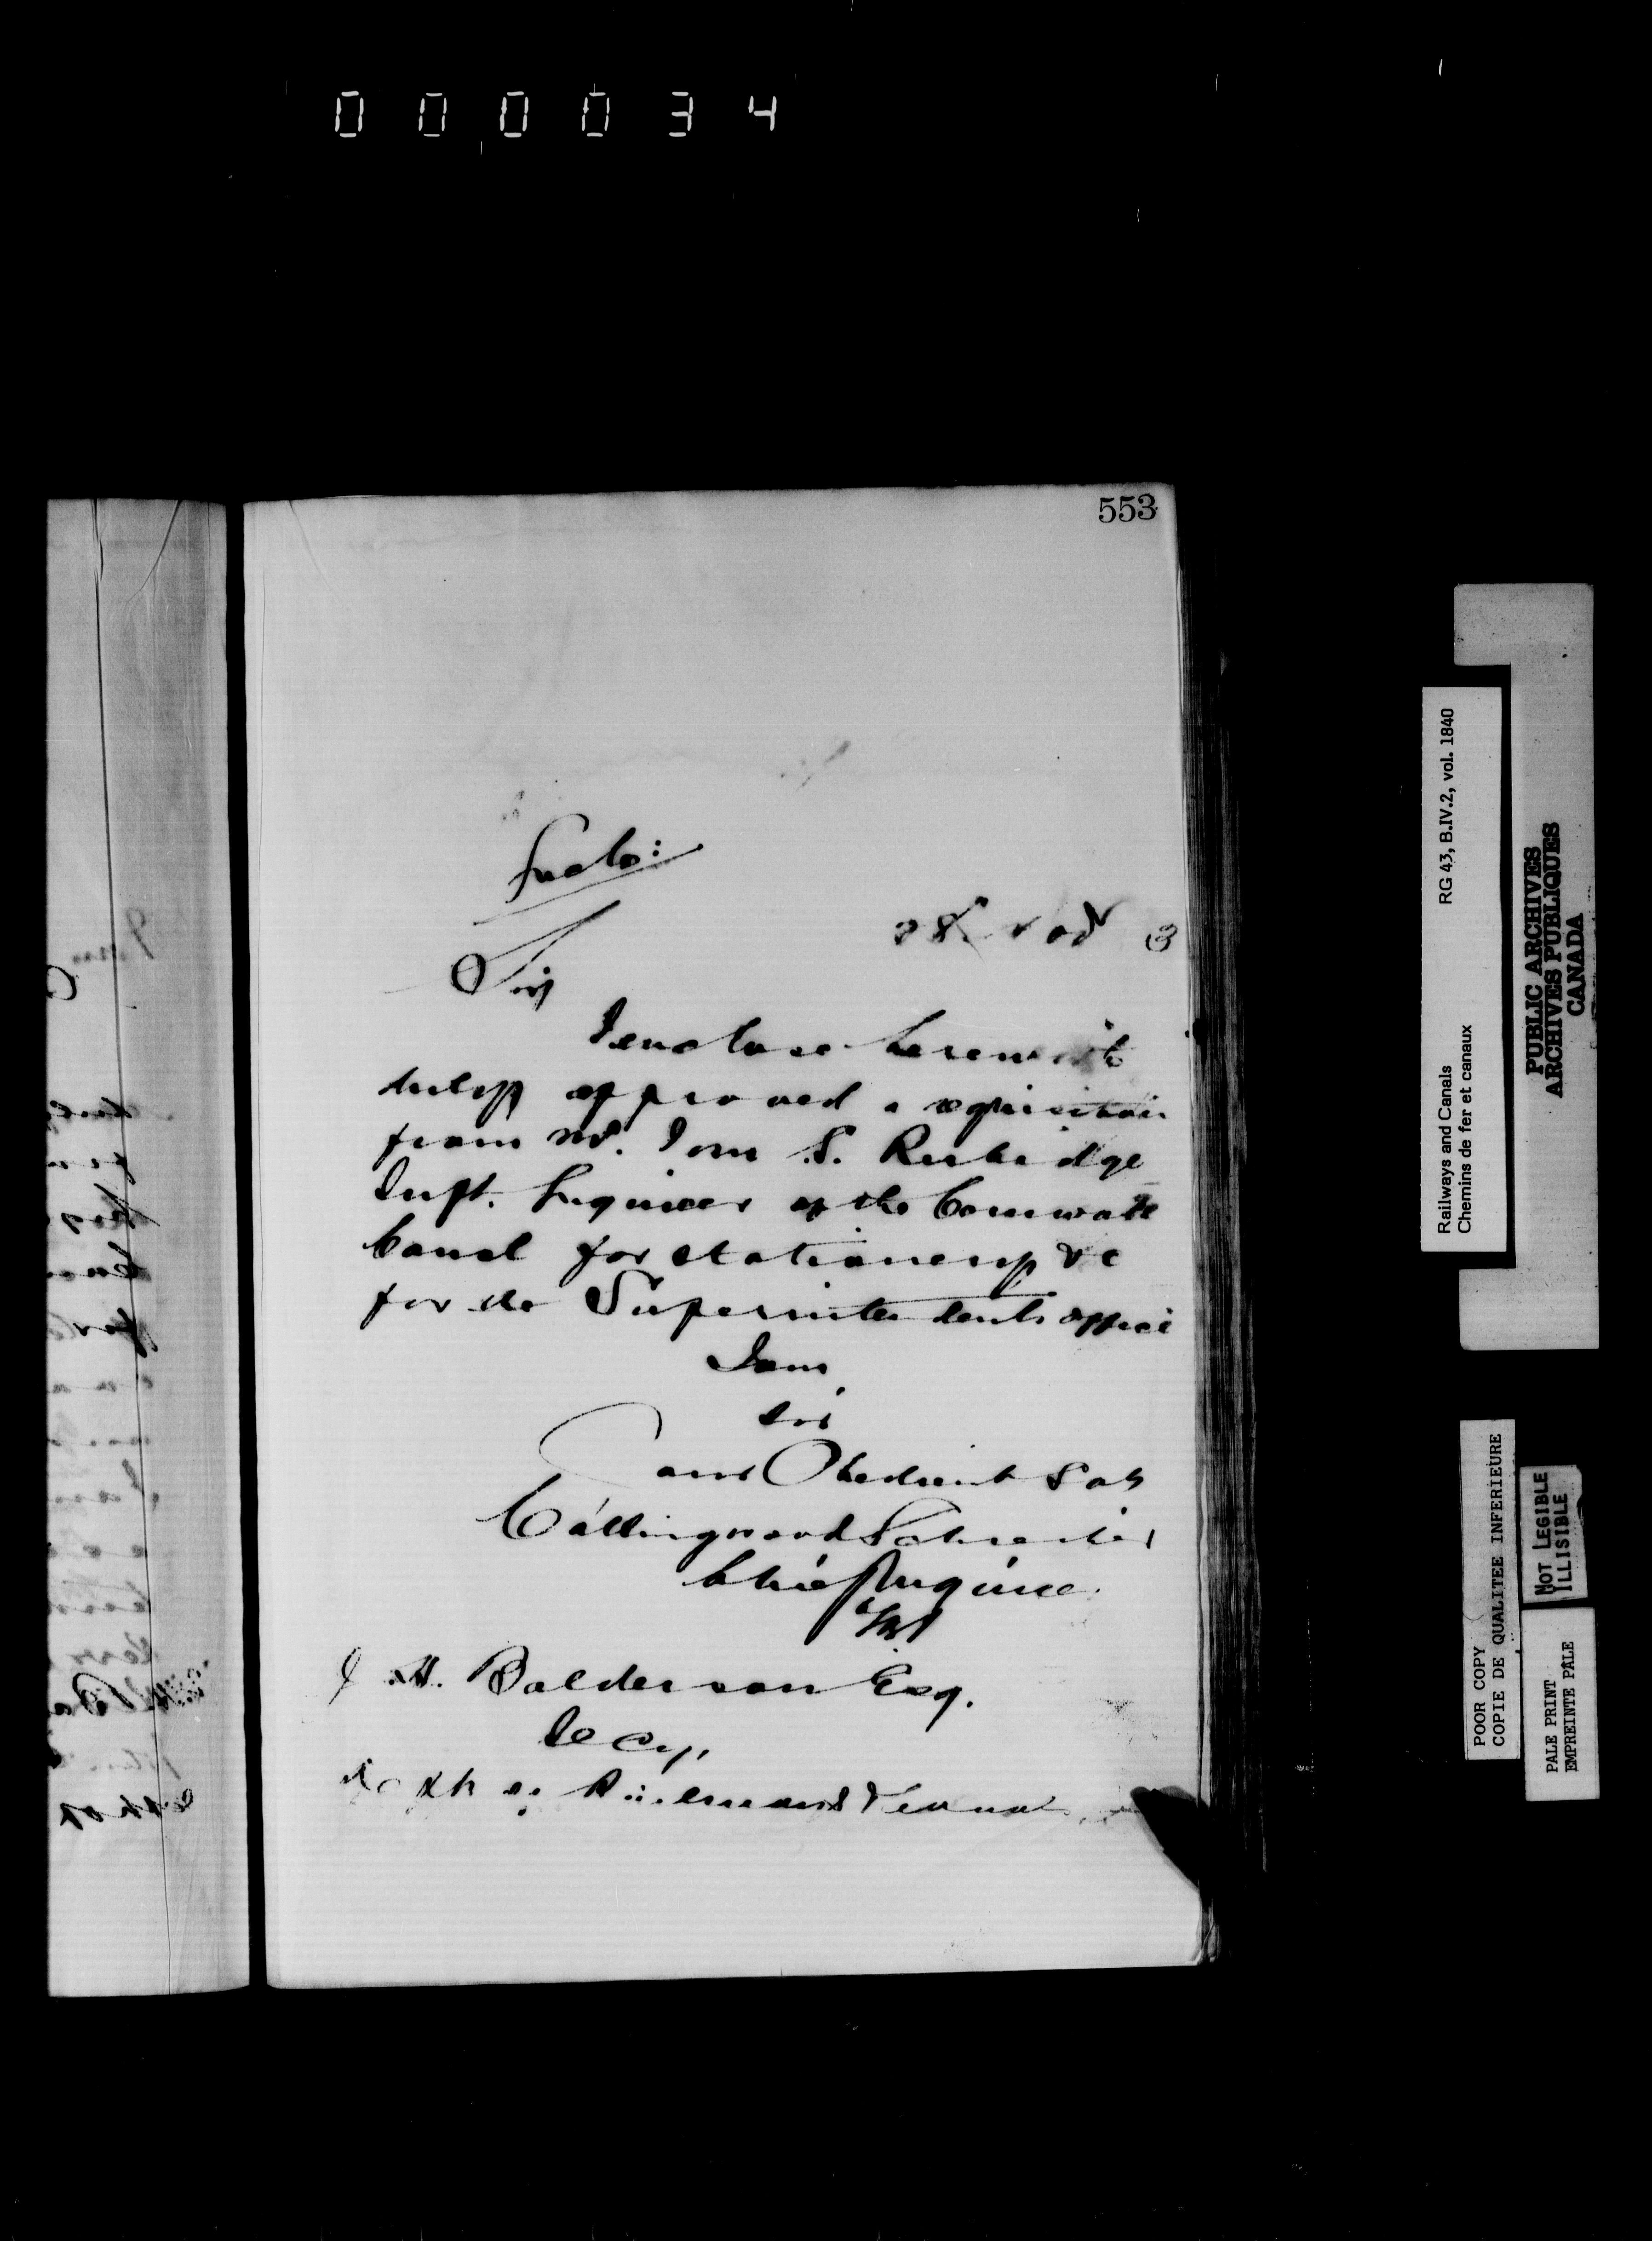 000034
553
Enclo:
28th Nov 3
Sir
I enclose herewith
duly approved a requisition
from Mr. Tom S. Rubidge
Supt. Engineer of the Cornwall
Canal for stationery &c
for the Superintendents office
I am
Sir
Your Obedient Svt
Collingwood Schreiber
Chief Engineer
J. H. Balderson Esq.
Secy.
Dept of Railways & Canals
Railways and Canals RG 43, B.IV.2, vol. 1840
Chemins de fer et canaux
PUBLIC ARCHIVES
ARCHIVES PUBLIQUES
CANADA
POOR COPY
COPIE DE QUALITEE INFERIEURE
NOT LEGIBLE
ILLISIBLE
PALE PRINT
EMPREINTE PÂLE